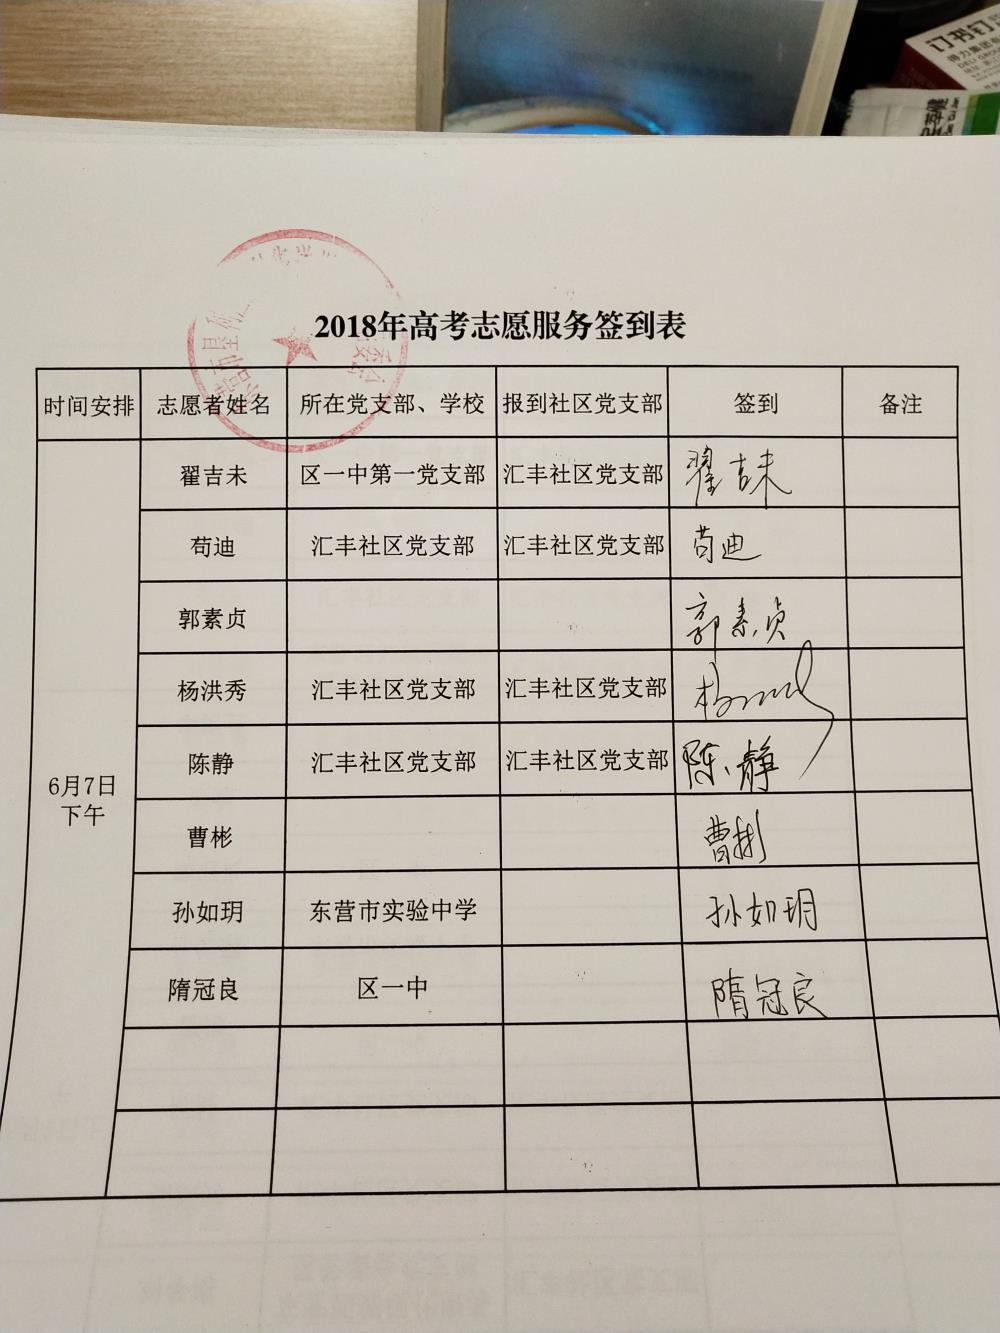 订书钉
得力集团有
DELI GRO
2018年高考志愿服务签到表
时间安排 志愿者姓名 所在党支部、学校 报到社区党支部 签到 备注
翟吉未 区一中第一党支部 汇丰社区党支部 翟吉未
苟迪 汇丰社区党支部 汇丰社区党支部 苟迪
郭素贞 郭素贞
杨洪秀 汇丰社区党支部 汇丰社区党支部
陈静 汇丰社区党支部 汇丰社区党支部 陈静
6月7日
下午
曹彬 曹彬
孙如玥 东营市实验中学 孙如玥
隋冠良 区一中 隋冠良